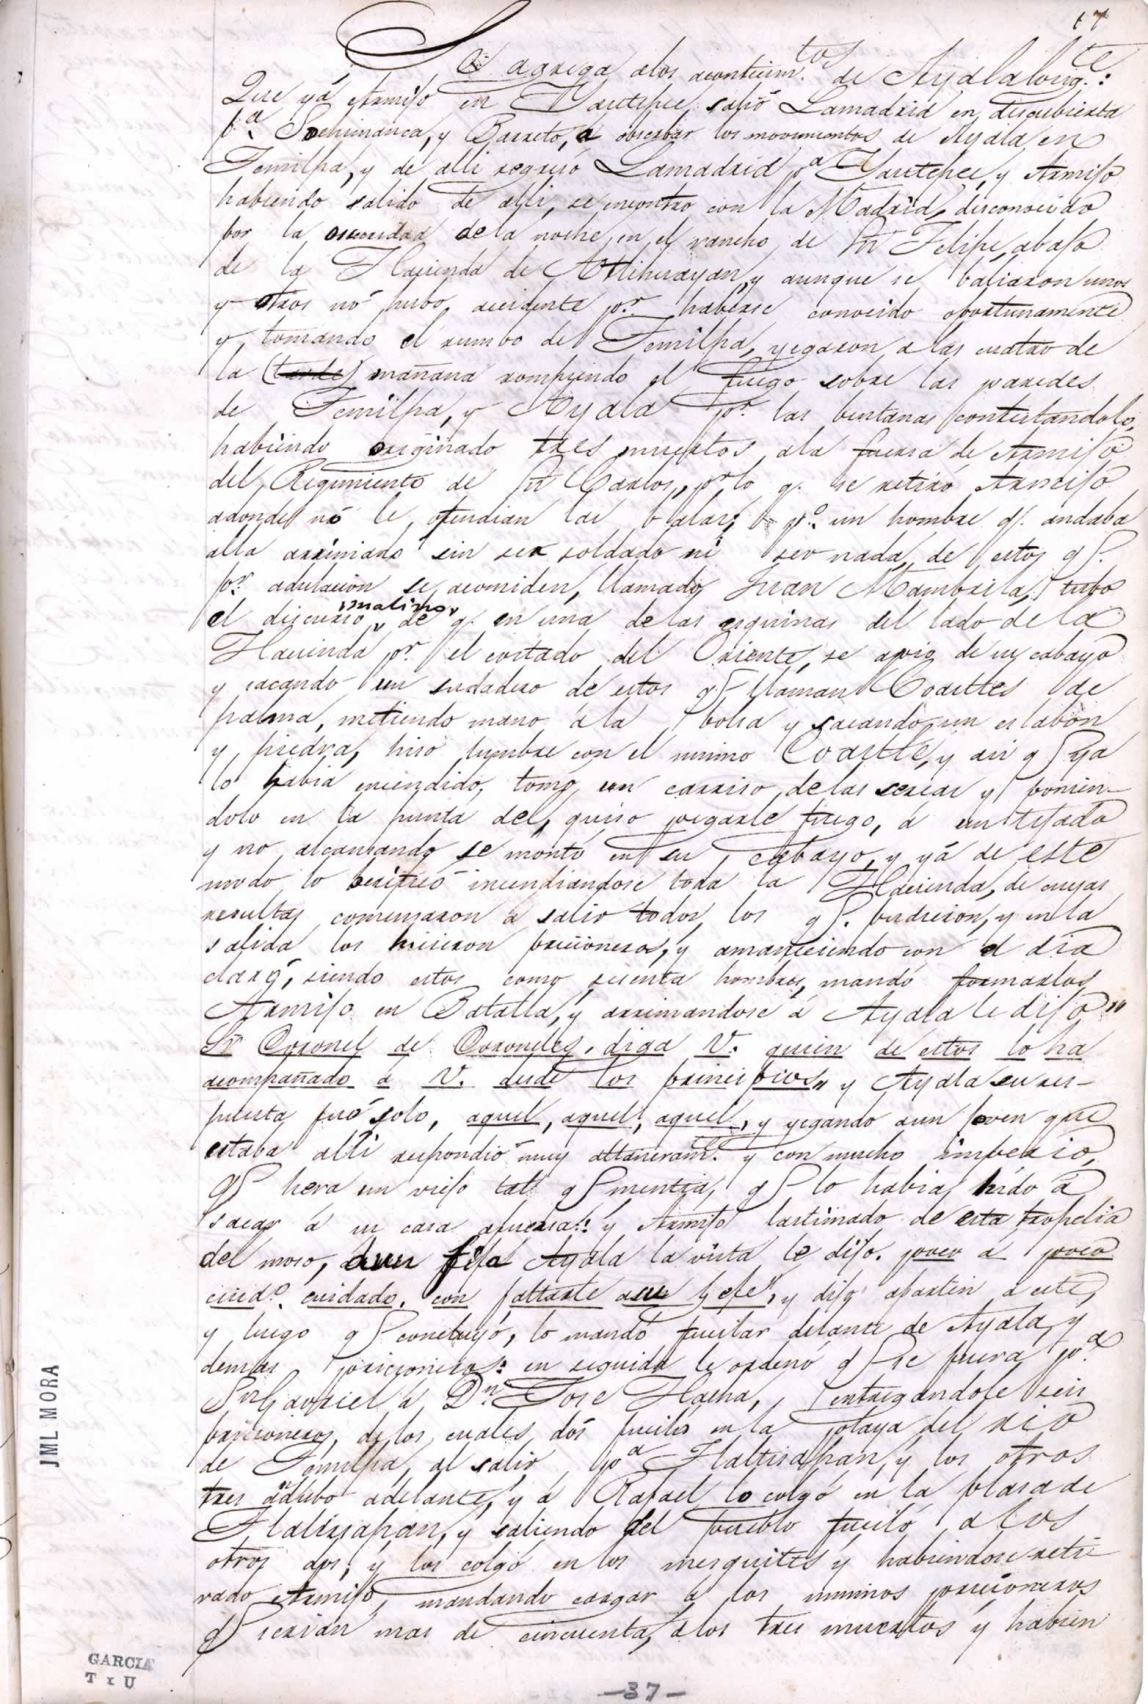 17
Se agrega alos acontecim.tos de Ayala long.te:
Que yá Armijo en Yautepec, salió Lamadrid en descubierta
p.a Sochimanca, y Barreto, a obserbar los movimientos de Ayala, en
Temilpa, y de alli regresó Lamadrid p.a Yautepec, y Armijo
habiendo salido de alli, se encontro con la Madrid, disconocido
por la oscuridad de la noche, en el rancho de Sn Felipe, abajo
de la Hacienda de Atlihuayan, y aunque se baliaron unos
y otros nó hubo, accidente p.r haberse conocido oportunamente
y tomando el rumbo de Temilpa, yegaron a las cuatro de
la (tarde) mañana rompiendo el fuego sobre las paredes
de Temilpa, y Ayala p.r las bentanas contestandolo,
habiendo originado tres muertos ala fuersa de Armijo
del Regimiento de Sn Carlos, p.r lo q. se retiro Armijo
adonde nó le ofendian las balas; p.o un hombre q. andaba
alla arrimiado sin ser soldado ni ser nada, de estos q.
p.r adulacion se acomiden, llamado Juan Mambrila, tubo
el discurso maligno, de q. en una de las esquinas del lado de la
Hacienda p.r el costado del Oriente, se apió de su cabayo
y sacando un sudadero de estos q. llaman Coastles de
palma, metiendo mano á la bolsa y sacando un eslabon
y piedra, hiso lumbre con el mismo Coastle, y asi q. ya
lo habia encendido, tomó un carriso de las sercas y ponien-
dolo en la punta del, quiso pegarle fuego, á un tejado
y no alcansando se montó en su cabayo, y yá de este
modo lo berificó incendiandose toda la Hacienda, de cuyas
resultas comensaron á salir todos los q. pudieron, y en la
salida los hicieron pricioneros, y amaneciendo con el dia
claro, siendo estos como sesenta hombres, mandó formarlos
Armijo en Batalla, y arrimandose á Ayala le dijo "
Sr Coronel de Coroneles, diga V. quien de estos lo ha
acompañado á V. desde los principios" y Ayala su res-
puesta fué solo, aquel, aquel, aquel, y yegando aun joven que
estaba alli respondió muy altaneram.te y con mucho imperio,
q. hera un viejo tal q. mentia, q. lo habia hido á
sacar á su casa afuersa: y Armijo lastimado de esta tropelia
del moso, fija Ayala la vista le dijo. poco á poco
cuidado, con faltarle a su Gefe, y dijo aparten a este,
y luego q. concluyó, lo mandó fucilar delante de Ayala, y
demas pricioneros: en seguida le ordenó q. se fuera p.a
Sn Gavriel á Dn Jose Hacha, entregandole seis
pricioneros, de los cuales dós fuciló en la playa del rio
de Temilpa, al salir p.a Tlaltisapan, y los otros
tres adelante, y á Rafael lo colgó en la plasa de
Tlaltisapan, y saliendo del pueblo fuciló a los
otros dos, y los colgó en los mesquites y habiendose reti-
rado Armijo, mandando cargar á los mismos pricioneros
q. serian mas de cincuenta, a los tres muertos y habien
JML MORA
GARCIA
T x U
-37-